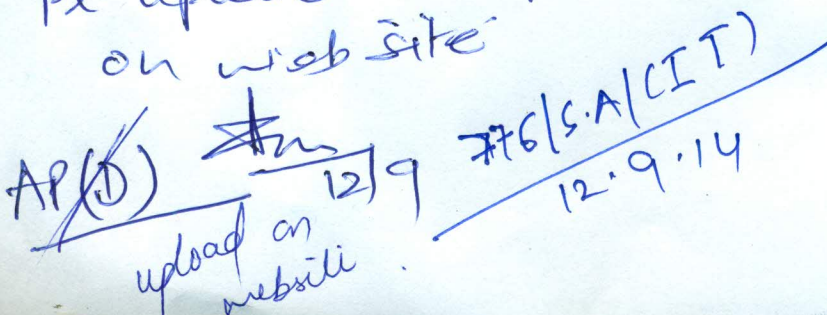 Pl upload
on website
AP(D) 12/9 776/S.A/(IT)
12.9.14
upload on
website